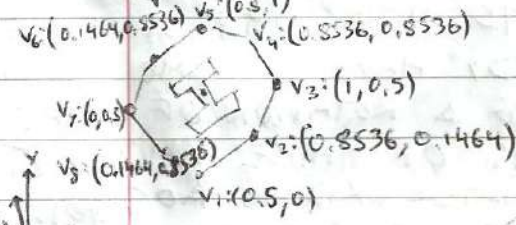 V5:(0.5,1)
V6:(0.1464,0.8536)
V4:(0.8536,0.8536)
V3:(1,0.5)
V7:(0,0.5)
V2:(0.8536,0.1464)
V8:(0.1464,0.8536)
V1:(0.5,0)
Y